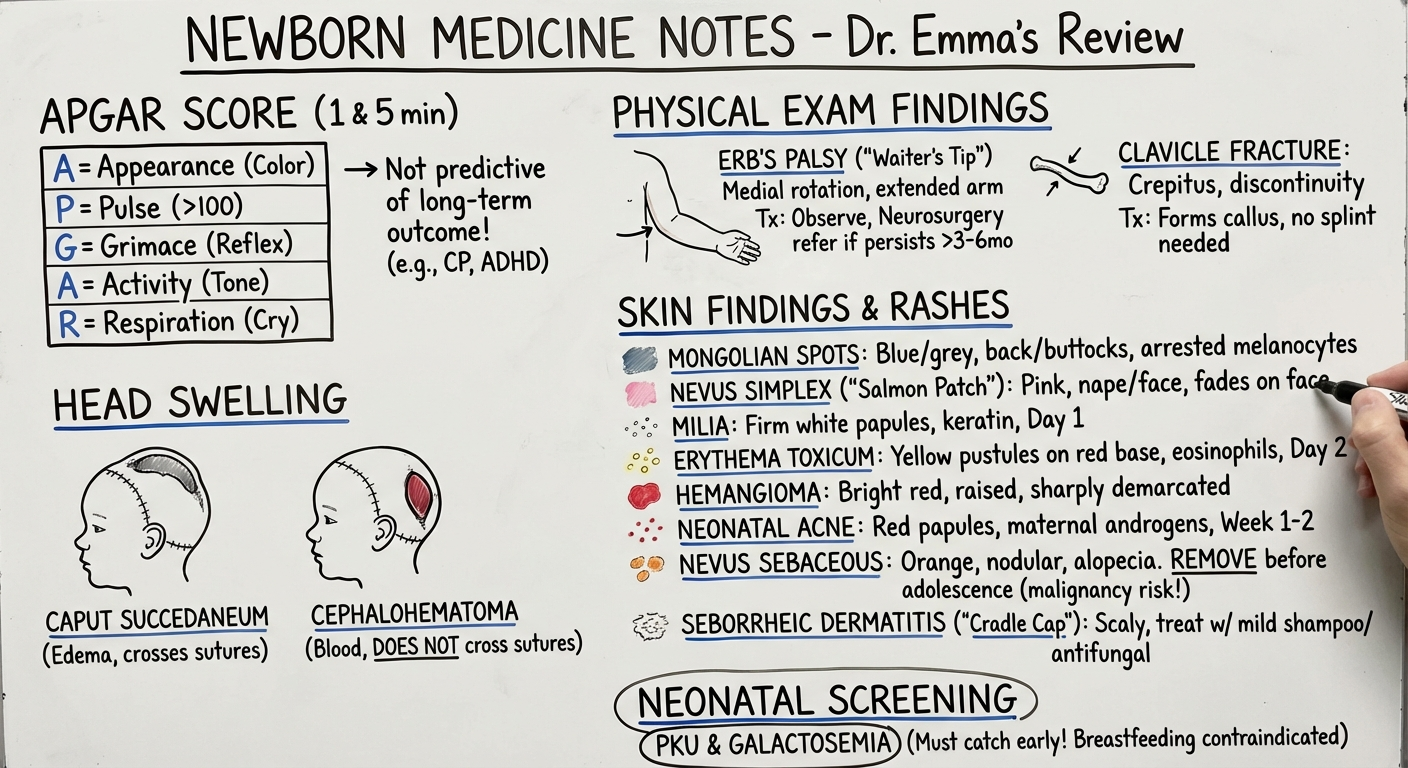 NEWBORN MEDICINE NOTES – Dr. Emma's Review
APGAR SCORE (1 & 5 min)
A = Appearance (Color)
P = Pulse (>100)
G = Grimace (Reflex)
A = Activity (Tone)
R = Respiration (Cry)
→ Not predictive
of long-term
outcome!
(e.g., CP, ADHD)
HEAD SWELLING
CAPUT SUCCEDANEUM
(Edema, crosses sutures)
CEPHALOHEMATOMA
(Blood, DOES NOT cross sutures)
PHYSICAL EXAM FINDINGS
ERB'S PALSY ("Waiter's Tip")
Medial rotation, extended arm
Tx: Observe, Neurosurgery
refer if persists >3-6mo
CLAVICLE FRACTURE:
Crepitus, discontinuity
Tx: Forms callus, no splint
needed
SKIN FINDINGS & RASHES
MONGOLIAN SPOTS: Blue/grey, back/buttocks, arrested melanocytes
NEVUS SIMPLEX ("Salmon Patch"): Pink, nape/face, fades on face
MILIA: Firm white papules, keratin, Day 1
ERYTHEMA TOXICUM: Yellow pustules on red base, eosinophils, Day 2
HEMANGIOMA: Bright red, raised, sharply demarcated
NEONATAL ACNE: Red papules, maternal androgens, Week 1-2
NEVUS SEBACEOUS: Orange, nodular, alopecia. REMOVE before
adolescence (malignancy risk!)
SEBORRHEIC DERMATITIS ("Cradle Cap"): Scaly, treat w/ mild shampoo/
antifungal
NEONATAL SCREENING
PKU & GALACTOSEMIA (Must catch early! Breastfeeding contraindicated)